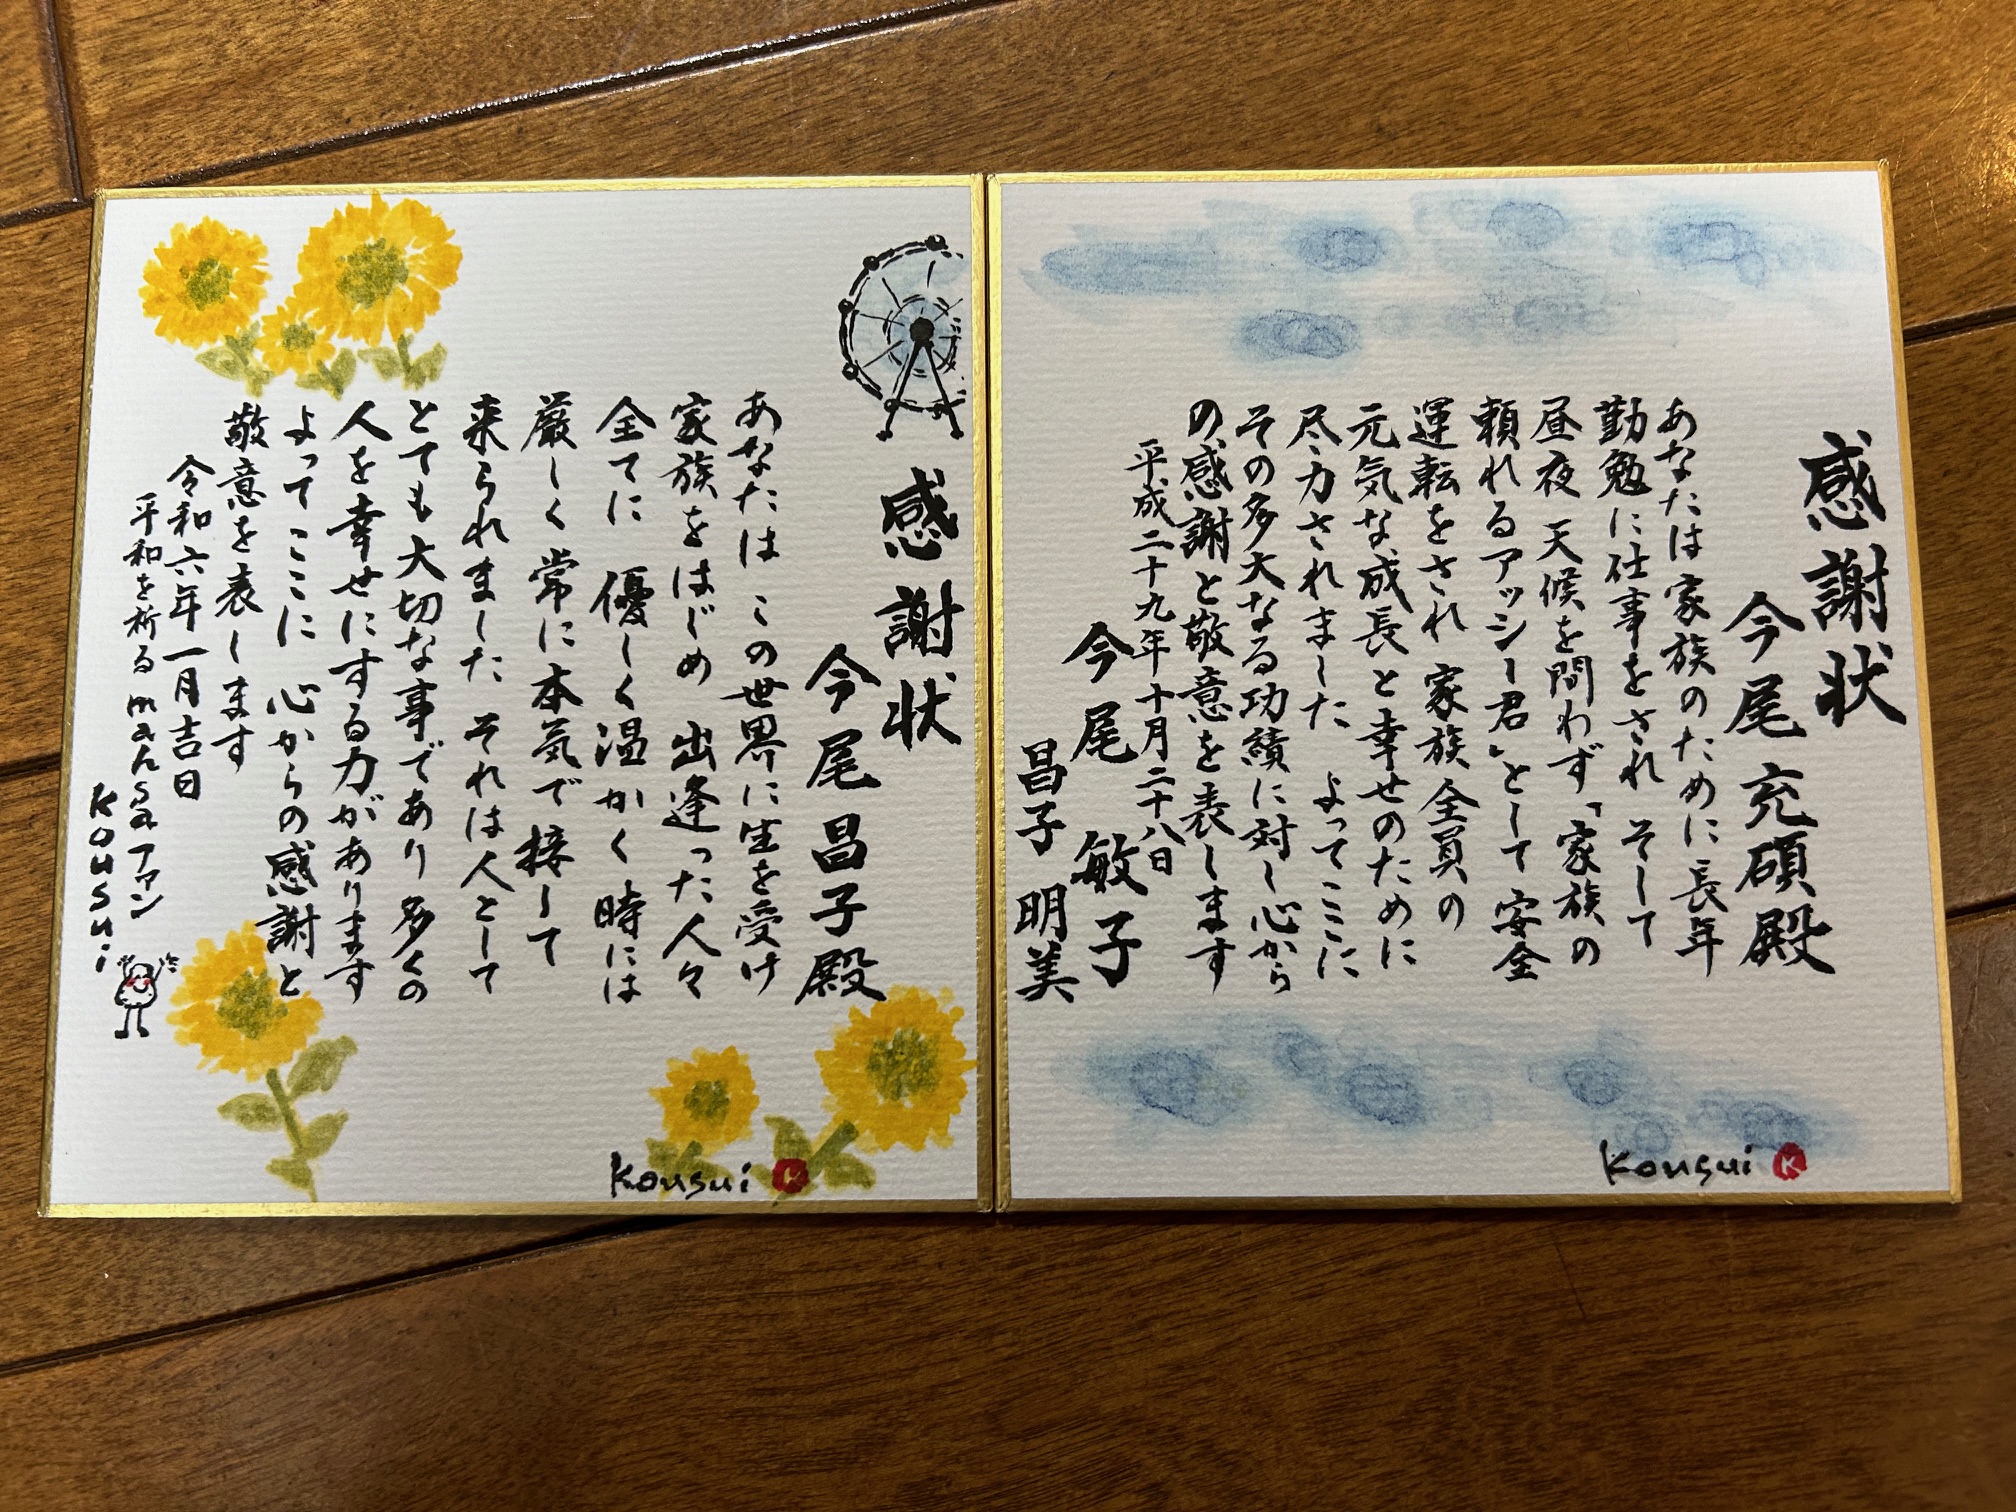 感謝状
今尾充碩殿
あなたは家族のために長年
勤勉に仕事をされ そして
昼夜 天候を問わず「家族の
頼れるアッシー君」として安全
運転をされ 家族全員の
元気な成長と幸せのために
尽力されました よってここに
その多大なる功績に対し心から
の感謝と敬意を表します
平成二十九年十月二十八日
今尾 敏子
昌子 明美
Kousui
K
感謝状
今尾昌子殿
あなたは この世界に生を受け
家族をはじめ 出逢った人々
全てに 優しく温かく時には
厳しく 常に本気で接して
来られました それは人として
とても大切な事であり多くの
人を幸せにする力があります
よってここに 心からの感謝と
敬意を表します
令和六年一月吉日
平和を祈るmansaファン
Kousui
Kousui
K